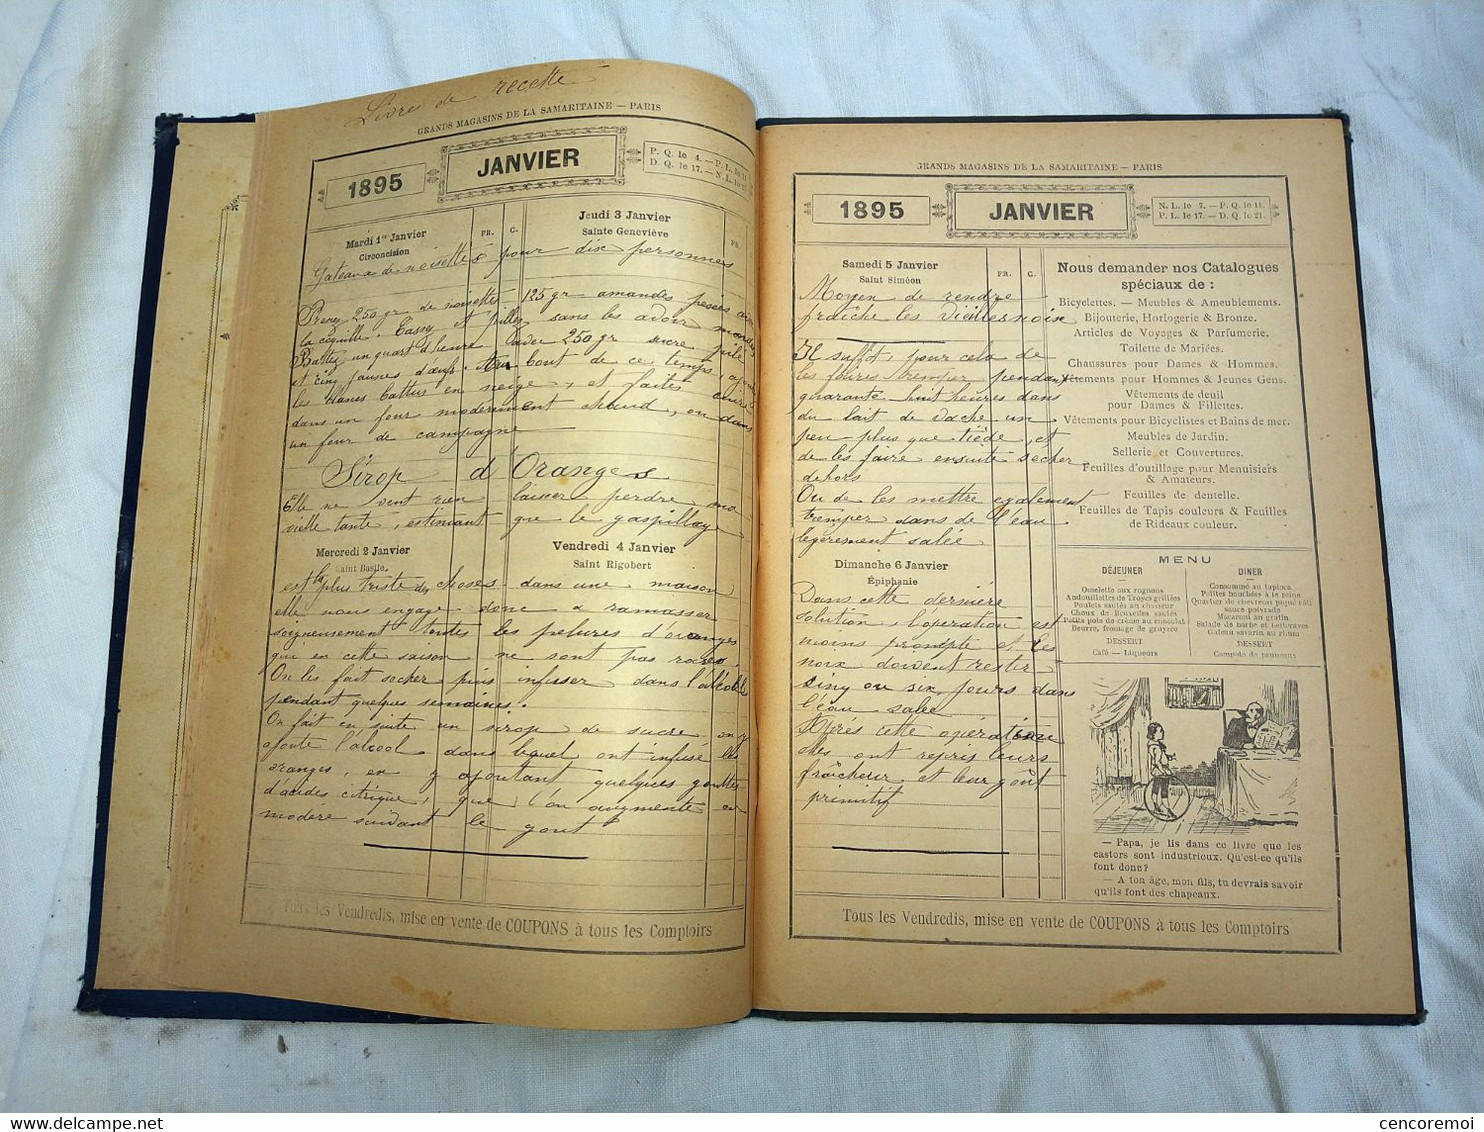 Livre de recette
GRANDS MAGASINS DE LA SAMARITAINE — PARIS
1895
JANVIER
P. Q. le 4. — P. L. le 11
D. Q. le 17. — N. L. le
Mardi 1er Janvier
Circoncision
FR. C.
Jeudi 3 Janvier
Sainte Geneviève
FR.
Gateaux de noisettes pour dix personnes
Prenez 250 gr de noisettes 125 gr amandes pesées
la coquille. Cassez et pillez sans les avoir mondées
Battez un quart d'heure avec 250 gr sucre pilé
et cinq jaunes d'œufs. Au bout de ce temps, ajoutez
les blancs battus en neige, et faites cuire
dans un four modérément chaud, ou dans
un four de campagne
Sirop d'Oranges
Elle ne veut rien laisser perdre ma
vieille tante, estimant que le gaspillage
Mercredi 2 Janvier
Saint Basile
Vendredi 4 Janvier
Saint Rigobert
est la plus triste des choses dans une maison
elle nous engage donc a ramasser
soigneusement toutes les pelures d'oranges
qui en cette saison ne sont pas rares.
On les fait secher puis infusser dans l'alcool
pendant quelques semaines.
On fait en suite un sirop de sucre on y
ajoute l'alcool dans lequel ont infusé les
oranges, en y ajoutant quelques gouttes
d'acides citrique, que l'on augmente ou
modère suivant le gout
Tous les Vendredis, mise en vente de COUPONS à tous les Comptoirs
GRANDS MAGASINS DE LA SAMARITAINE — PARIS
1895
JANVIER
N. L. le 7. — P. Q. le 11.
P. L. le 17. — D. Q. le 21.
Samedi 5 Janvier
Saint Siméon
FR. C.
Moyen de rendre
fraîche les vieilles noix
Il suffit, pour cela de
les faires tremper pendant
quarante huit heures dans
du lait de vache un
peu plus que tiède, et
de les faire ensuite secher
dehors
Ou de les mettre également
tremper dans de l'eau
légèrement salée
Dimanche 6 Janvier
Épiphanie
Dans cette dernière
solution, l'opération est
moins prompte et les
noix doivent rester
cinq ou six jours dans
l'eau salée
Après cette opération
elles ont repris leurs
fraîcheur et leur goût
primitif
Nous demander nos Catalogues
spéciaux de :
Bicyclettes. — Meubles & Ameublements.
Bijouterie, Horlogerie & Bronze.
Articles de Voyages & Parfumerie.
Toilette de Mariées.
Chaussures pour Dames & Hommes.
Vêtements pour Hommes & Jeunes Gens.
Vêtements de deuil
pour Dames & Fillettes.
Vêtements pour Bicyclistes et Bains de mer.
Meubles de Jardin.
Sellerie et Couvertures.
Feuilles d'outillage pour Menuisiers
& Amateurs.
Feuilles de dentelle.
Feuilles de Tapis couleurs & Feuilles
de Rideaux couleur.
MENU
DÉJEUNER
Omelette aux rognons
Andouillettes de Troyes grillées
Poulets sautés au chasseur
Choux de Bruxelles sautés
Petits pots de crème au chocolat
Beurre, fromage de gruyère
DESSERT
Café — Liqueurs
DINER
Consommé au tapioca
Petites bouchées à la reine
Quartier de chevreuil piqué rôti
sauce poivrade
Macaroni au gratin
Salade de mâche et betteraves
Gâteau savarin au rhum
DESSERT
Compote de pruneaux
— Papa, je lis dans ce livre que les
castors sont industrieux. Qu'est-ce qu'ils
font donc?
— A ton âge, mon fils, tu devrais savoir
qu'ils font des chapeaux.
Tous les Vendredis, mise en vente de COUPONS à tous les Comptoirs
www.delcampe.net
cencoremoi